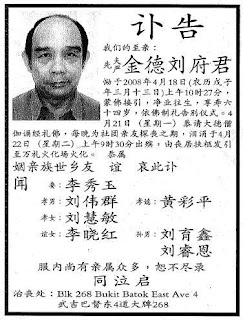 讣告
我们的至亲:
先夫严 金德刘府君
恸于2008年4月18日(农历戊子
年三月十三日)上午10时27分,
蒙佛接引,净业往生,享寿六
十四岁,依佛制礼告别仪式。4月
21日(星期一)恭请大德僧
伽诵经礼佛,每晚为社团亲友探丧之期,泪涓于4月
22日(星期二)上午9时30分出殡,由丧居扶柩发引
至万礼火化场火化。 恭属
姻亲族世乡友 谊 哀此讣
闻
妻:李秀玉
孝男:刘伟群 孝媳:黄彩平
孝女:刘慧敏
谊女:李晓红 孙:刘育鑫
刘睿恩
服内尚有亲属众多,恕不尽录
同泣启
治丧处:Blk 268 Bukit Batok East Ave 4
武吉巴督东4道大牌268